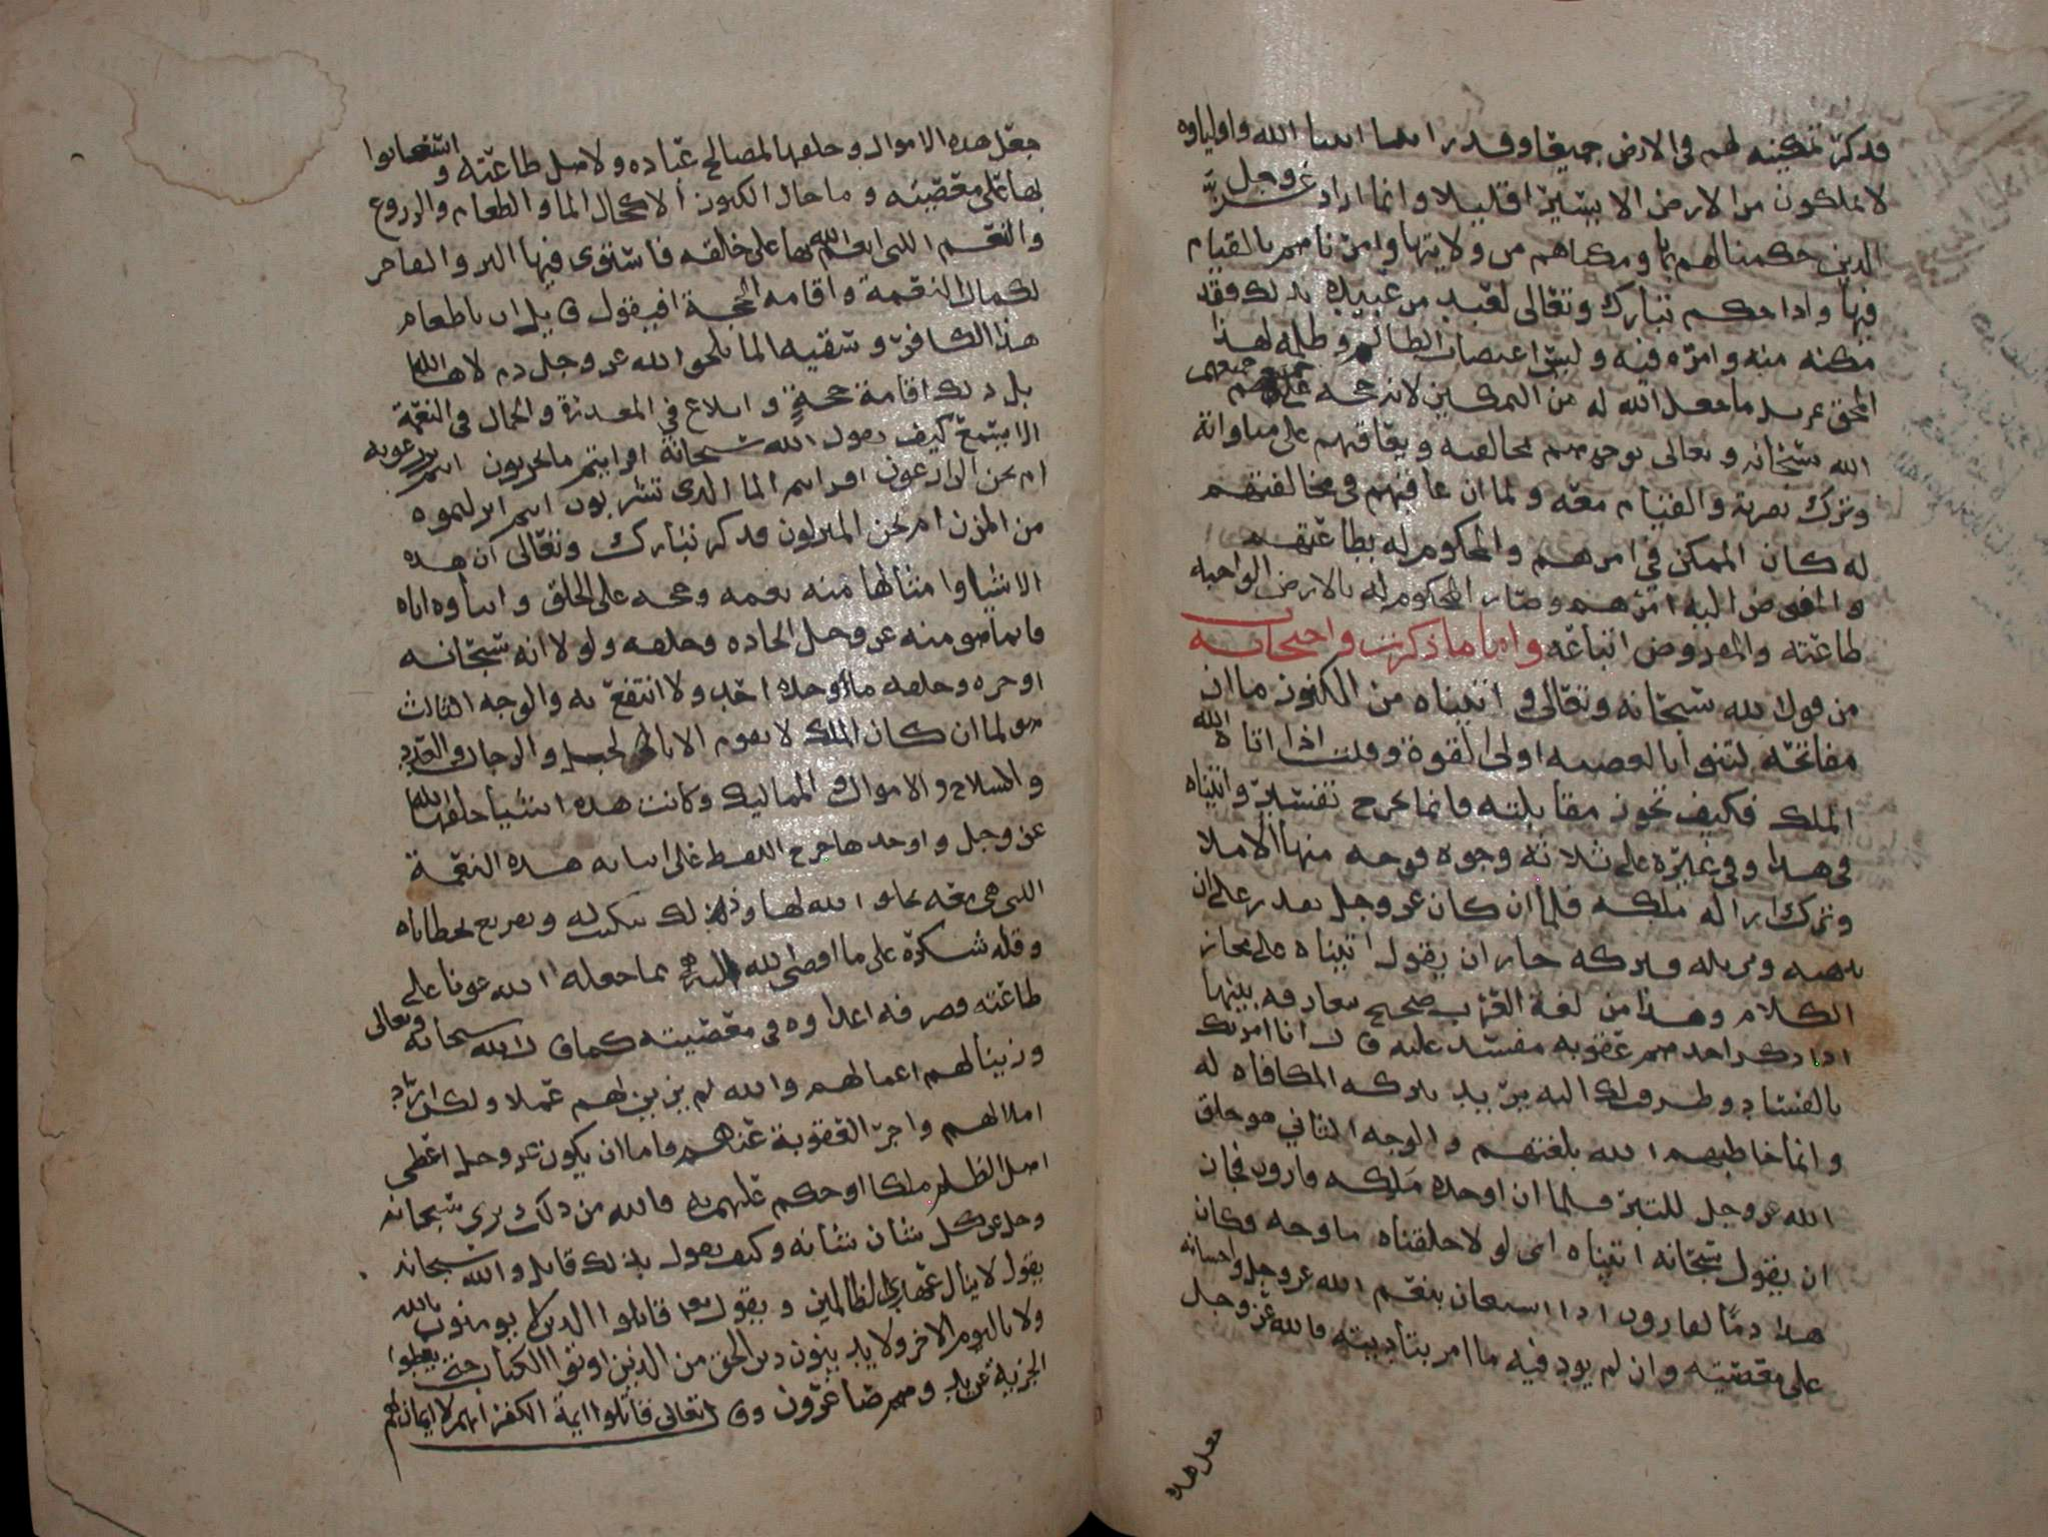 فذكر تمكينه لهم في الارض جميعا وقد راينا انبيا الله واولياوه
لا يملكون من الارض الا يسيرا قليلا وانما اراد عز وجل
الذين حكمنا لهم بما ومكناهم من ولايتها وامرناهم بالقيام
فيها واذا حكم تبارك وتعالى لعبد من عبيده بذلك فقد
مكنه منه وامره فيه وليس اعتصاب الظالم وظلمه لهذا
المحق عزيل ما جعل الله له من التمكين لانه حجة عليهم جميعهم
الله سبحانه وتعالى يوجرهم بمخالفته ويعاقبهم على مناواته
وترك نصرته والقيام معه ولما ان عاقبهم في مخالفتهم
له كان الممكن في امرهم والمحكوم له بطاعتهم
والمفوض اليه امرهم وصار المحكوم له بالارض الواجبه
طاعته والمفروض اتباعه واما ما ذكرت واحتججت به
من قول الله سبحانه وتعالى واتيناه من الكنوز ما ان
مفاتحه لتنوا بالعصبه اولى القوة وقلت اذا اتاه الله
الملك فكيف تجوز مقاتلته فانما يخرج تفسير واتيناه
في هذا وفي غيره على ثلاثة وجوه فوجه منها الاملا
وترك ازالة ملكه فلما ان كان عز وجل يقدر على ان
يذهبه ويزيله وتركه جاز ان يقول اتيناه على مجاز
الكلام وهذا من لغة العرب صحيح تعارفه بينها
اذا ترك احد منهم عقوبه مفسد عليه قال انا امرتك
بالفساد وطرقت لك اليه يريد بتركه المكافاه له
وانما خاطبهم الله بلغتهم والوجه الثاني هو خلق
الله عز وجل للتبر فلما ان اوجده ملكه قارون فجاز
ان يقول سبحانه اتيناه اي لولا خلقناه ما وجه وكان
هذا ذما لقارون اذا استعان بنعم الله عز وجل واحسانه
على معصيته وان لم يود فيه ما امر بتاديته فالله عز وجل
جعل هذه
جعل هذه الاموال وخلقها لمصالح عباده ولاهل طاعته واستعانوا
بها على معصيته وما حال الكنوز الا كحال الما والطعام والزروع
والنعم التي انعم الله بها على خلقه فاستوى فيها البر والفاجر
لكمال النعمة واقامه الحجة افيقول قايل ان باطعام
هذا الكافر وسقيه الما يلحق الله عز وجل ذم لا ها الله
بل ذلك اقامة حجة وابلاغ في المعذرة والكمال في النعمة
الا تستمع كيف يقول الله سبحانه افرايتم ما تحرثون اانتم تزرعونه
ام نحن الزارعون افرايتم الما الذي تشربون اانتم انزلتموه
من المزن ام نحن المنزلون فذكر تبارك وتعالى ان هذه
الاشيا وامثالها منه نعمه وحجه على الخلق وايتاوه اياه
فانما هو منه عز وجل اتحاده وخلقه ولولا انه سبحانه
اوجره وخلقه ما اوجده احد ولا انتفع به والوجه الثالث
هو لما ان كان الملك لا يقوم الا بالخيل والرجال والعدد
والسلاح والاموال والمماليك وكانت هذه اشيا خلقها الله
عز وجل واوجدها خرج اللفظ على ايتايه هذه النعمة
التي هي معه بخلق الله لها وذلك تبكيت له وتقريع بخطاياه
وقلة شكره على ما افضى الله اليه مما جعله الله عونا على
طاعته فصرفه اعداوه في معصيته كما قال الله سبحانه وتعالى
وزينا لهم اعمالهم والله لم يزين لهم عملا ولكن اراد
املا لهم واخر العقوبة عنهم فاما ان يكون عز وجل اعطى
اهل الظلم ملكا او حكم عليهم به فالله من ذلك بري سبحانه
وجل عن كل شان شانه وكيف يقول بذلك قايل والله سبحانه
يقول لا ينال عهدي الظالمين ويقول قاتلوا الذين لا يومنون بالله
ولا باليوم الاخر ولا يدينون دين الحق من الذين اوتوا الكتاب حتى يعطوا
الجزية عن يد وهم صاغرون وقال تعالى فقاتلوا ايمة الكفر انهم لا ايمان لهم